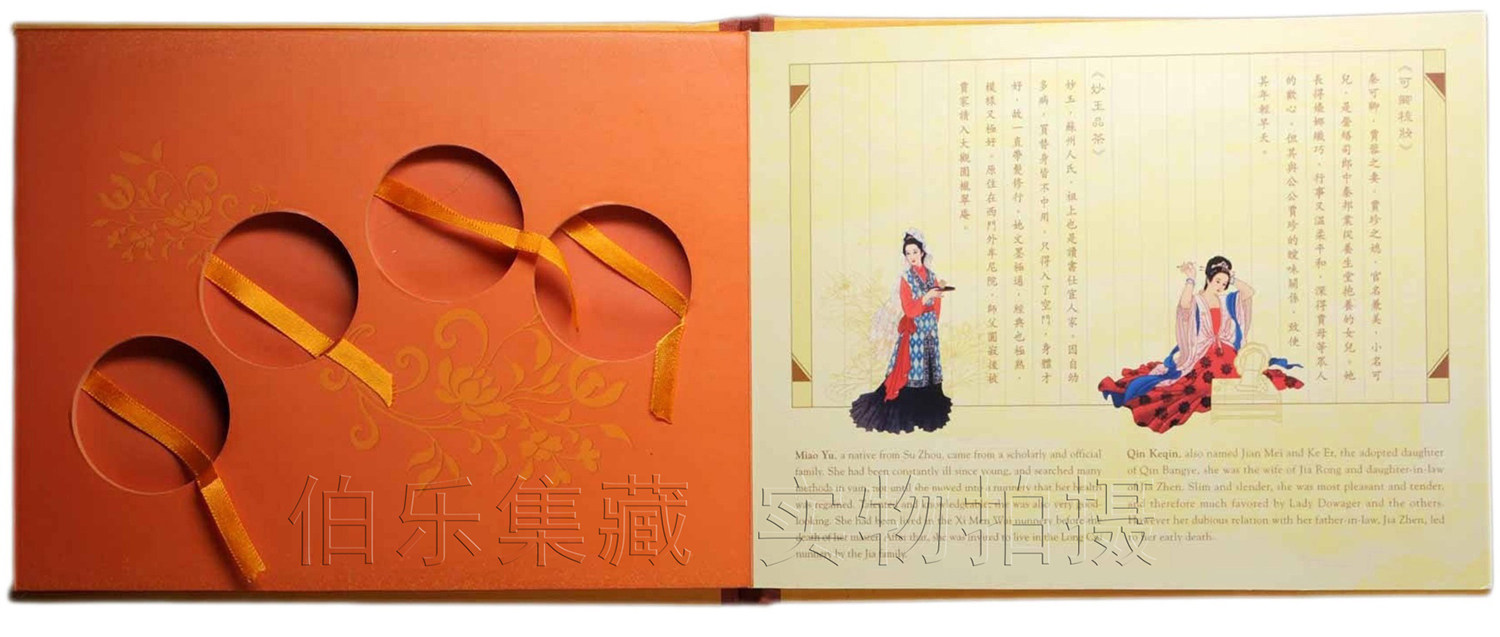 《可卿梳妝》
秦可卿，賈蓉之妻，賈珍之媳，官名兼美，小名可
兒，是營繕司郎中秦邦業從養生堂抱養的女兒。她
長得嬝娜纖巧，行事又溫柔平和，深得賈母等眾人
的歡心。但其與公公賈珍的曖昧關係，致使
其年輕早夭。
《妙玉品茶》
妙玉，蘇州人氏，祖上也是讀書仕宦人家，因自幼
多病，買替身皆不中用，只得入了空門，身體才
好，故一直帶髮修行。她文墨極通，經典也極熟，
模樣又極好。原住在西門外牟尼院，師父圓寂後被
賈家請入大觀園櫳翠庵。
Miao Yu, a native from Su Zhou, came from a scholarly and official
family. She had been constantly ill since young, and searched many
methods in vain, not until she moved into a nunnery that her health
was regained. Literate and knowledgeable, she was also very good-
looking. She had been lived in the Xi Men Wai nunnery before the
death of his master. After that, she was invited to live in the Long Cui
nunnery by the Jia family.
Qin Keqin, also named Jian Mei and Ke Er, the adopted daughter
of Qin Bangye, she was the wife of Jia Rong and daughter-in-law
of Jia Zhen. Slim and slender, she was most pleasant and tender,
and therefore much favored by Lady Dowager and the others.
However her dubious relation with her father-in-law, Jia Zhen, led
to her early death.
伯乐集藏 实物拍摄